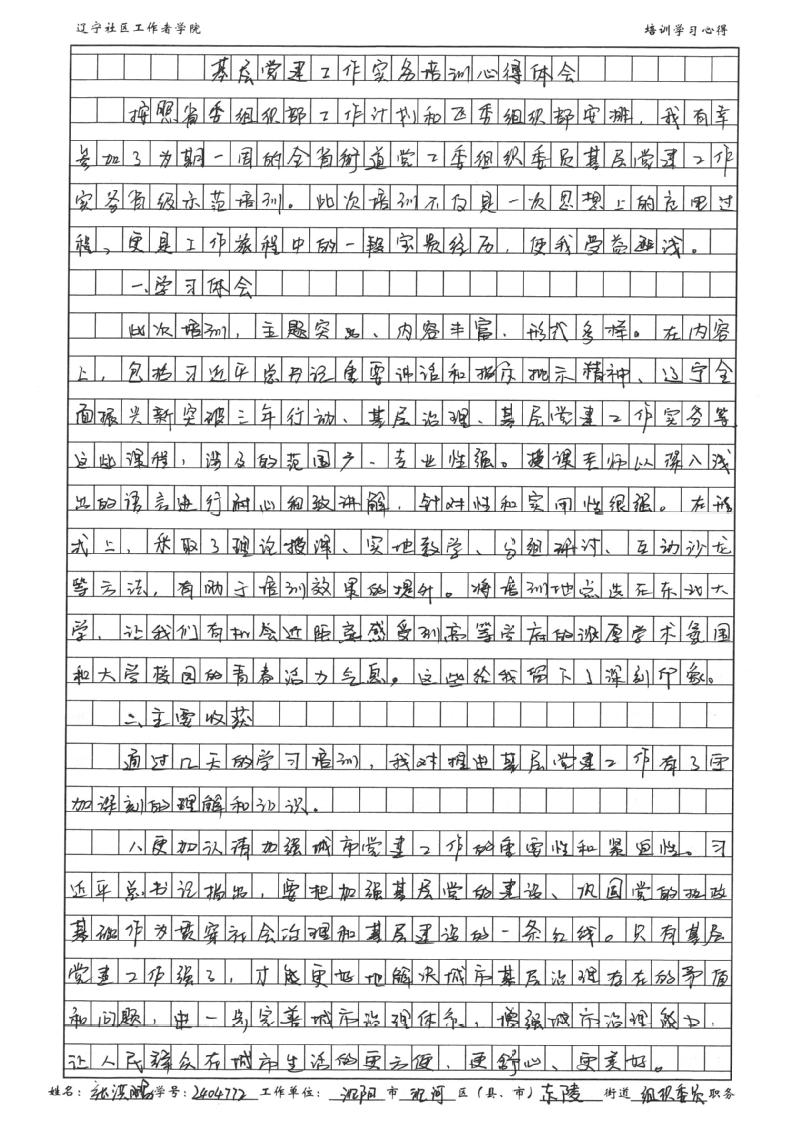 辽宁社区工作者学院 培训学习心得
基层党建工作实务培训心得体会
按照省委组织部工作计划和区委组织部安排,我有幸
参加了为期一周的全省街道党工委组织委员基层党建工作
实务省级示范培训。此次培训不仅是一次思想上的应用过
程,更是工作旅程中的一段宝贵经历,使我受益匪浅。
一、学习体会
此次培训,主题突出、内容丰富、形式多样。在内容
上,包括习近平总书记重要讲话和指示批示精神、辽宁全
面振兴新突破三年行动、基层治理、基层党建工作实务等
这些课程,涉及的范围广、专业性强。授课老师以深入浅
出的语言进行耐心细致讲解,针对性和实用性很强。在形
式上,采取了理论授课、实地教学、分组研讨、互动沙龙
等方法,有助于培训效果的提升。将培训地点选在东北大
学,让我们有机会近距离感受到高等学府的浓厚学术氛围
和大学校园的青春活力气息。这些给我留下了深刻印象。
二、主要收获
通过几天的学习培训,我对推进基层党建工作有了更
加深刻的理解和认识。
1.更加认清加强城市党建工作的重要性和紧迫性。习
近平总书记指出,要把加强基层党的建设、巩固党的执政
基础作为贯穿社会治理和基层建设的一条红线。只有基层
党建工作强了,才能更好地解决城市基层治理存在的矛盾
和问题,进一步完善城市治理体系,增强城市治理能力,
让人民群众在城市生活的更方便、更舒心、更美好。
姓名:张洪鹏 学号:2404772 工作单位:沈阳市沈河区(县、市)东陵街道组织委员职务